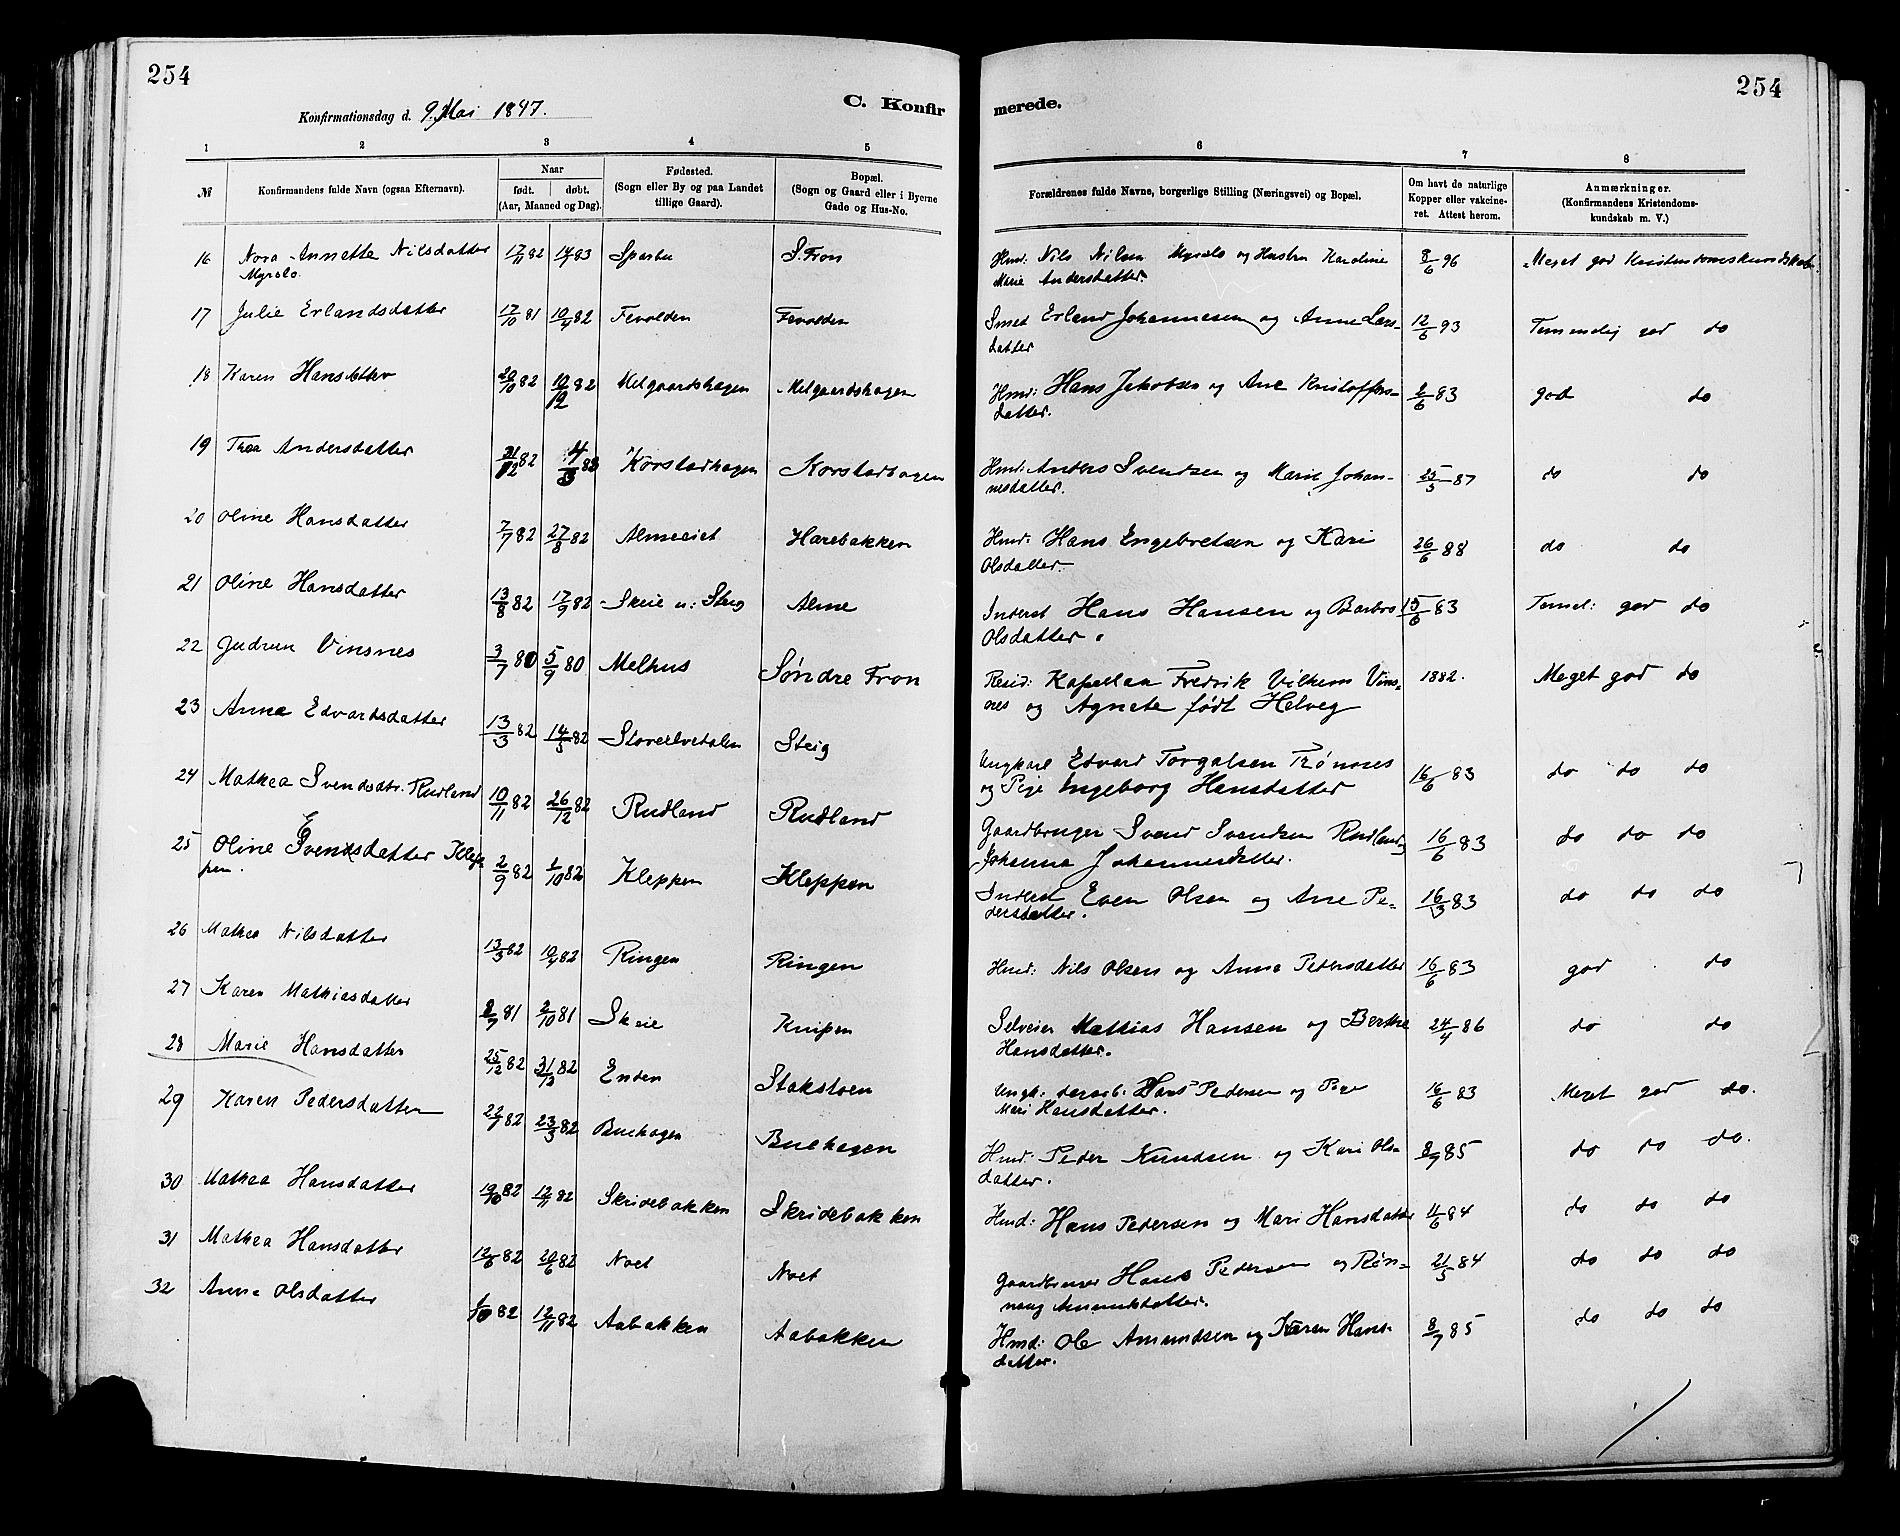 254
254
Konfirmationsdag d. 9. Mai 1897.
C. Konfirmerede.
1 2 3 4 5 6 7 8
№ Konfirmandens fulde Navn (ogsaa Efternavn). Naar født. døbt. (Aar, Maaned og Dag). Fødested. (Sogn eller By og paa Landet tillige Gaard). Bopæl. (Sogn og Gaard eller i Byerne Gade og Hus-No. Forældrenes fulde Navne, borgerlige Stilling (Næringsvei) og Bopæl. Om havt de naturlige Kopper eller vakcineret. Attest herom. Anmærkninger. (Konfirmandens Kristendomskundskab m. V.)
16 Nora Annette Nilsdatter 17/11 82 14/1 83 S. Fron Hmd: Nils Nilsen Myrslo og Hustru Karoline 8/6 96 Meget god Kristendomskundskab.
Myrslo. Marie Andersdatter.
17 Julie Erlandsdatter 17/10 81 10/4 82 Fevolden Fevolden Smed Erland Johannesen og Anne Lars- 12/6 93 Temmelig god do
datter
18 Karen Hansdatter 20/10 82 10/12 82 Melgaardshagen Melgaardshagen Hmd: Hans Jakobsen og Ane Kristoffers- 2/6 83 god do
datter.
19 Thea Andersdatter 31/12 82 4/3 83 Korstadhagen Korstadhagen Hmd: Anders Svendsen og Marie Johan- 25/5 87 do do
nesdatter.
20 Oline Hansdatter 7/7 82 27/8 82 Almeeiet Harebakken Hmd: Hans Engebretsen og Kari 26/6 88 do do
Olsdatter.
21 Oline Hansdatter 13/8 82 17/9 82 Skeie u: Steig Alme Inderst Hans Hansen og Barbro 15/6 83 Temel: god do
Olsdatter.
22 Gudrun Vinsnes 3/7 80 5/9 80 Melhus Søndre Fron Resid: Kapellan Fredrik Vilhelm Vins- 1882. Meget god do
nes og Agnete født Helveg
23 Anne Edvardsdatter 13/3 82 14/5 82 Storeelvedalen Steig Ungkarl Edvard Torgalsen Trønnes 16/6 83 do do do
og Pige Ingeborg Hansdatter
24 Mathea Svendsdtr. Rudland 10/11 82 26/12 82 Rudland Rudland Gaardbruger Svend Svendsen Rudland og 16/6 83 do do do
Johanna Johannesdatter.
25 Oline Evensdatter Klep- 2/9 82 1/10 82 Kleppen Kleppen Inderst Even Olsen og Ane Pe- 16/3 83 do do do
pen. dersdatter.
26 Mathea Nilsdatter 13/3 82 10/4 82 Ringen Ringen Hmd: Nils Olsen og Anne Pedersdatter 16/6 83 god do
27 Karen Mathiasdatter 8/7 81 2/10 81 Skeie Knipen Selveier Mathias Hansen og Berthe 24/4 86 do do
Hansdatter.
28 Marie Hansdatter 25/12 82 31/12 82 Enden Stokstoen Ungk: Hans Pedersen og Pige 16/6 83 Meget god do.
Mari Hansdatter.
29 Karen Pedersdatter 22/1 82 23/3 82 Buehagen Buehagen Hmd: Peder Knudsen og Kari Ols- 8/9 85 do do do.
datter.
30 Mathea Hansdatter 19/10 82 12/11 82 Skridebakken Skridebakken Hmd: Hans Pedersen og Mari Hansdatter 11/6 84 do do do
31 Mathea Hansdatter 82 20/6 82 Noet Noet Gaardbruger Hans Pedersen og Røn- 21/5 84 do do do
naug Amundsdatter.
32 Anne Olsdatter 1/10 82 12/11 82 Aabakken Aabakken Hmd: Ole Amundsen og Karen Hans- 8/7 85 do do do
datter.